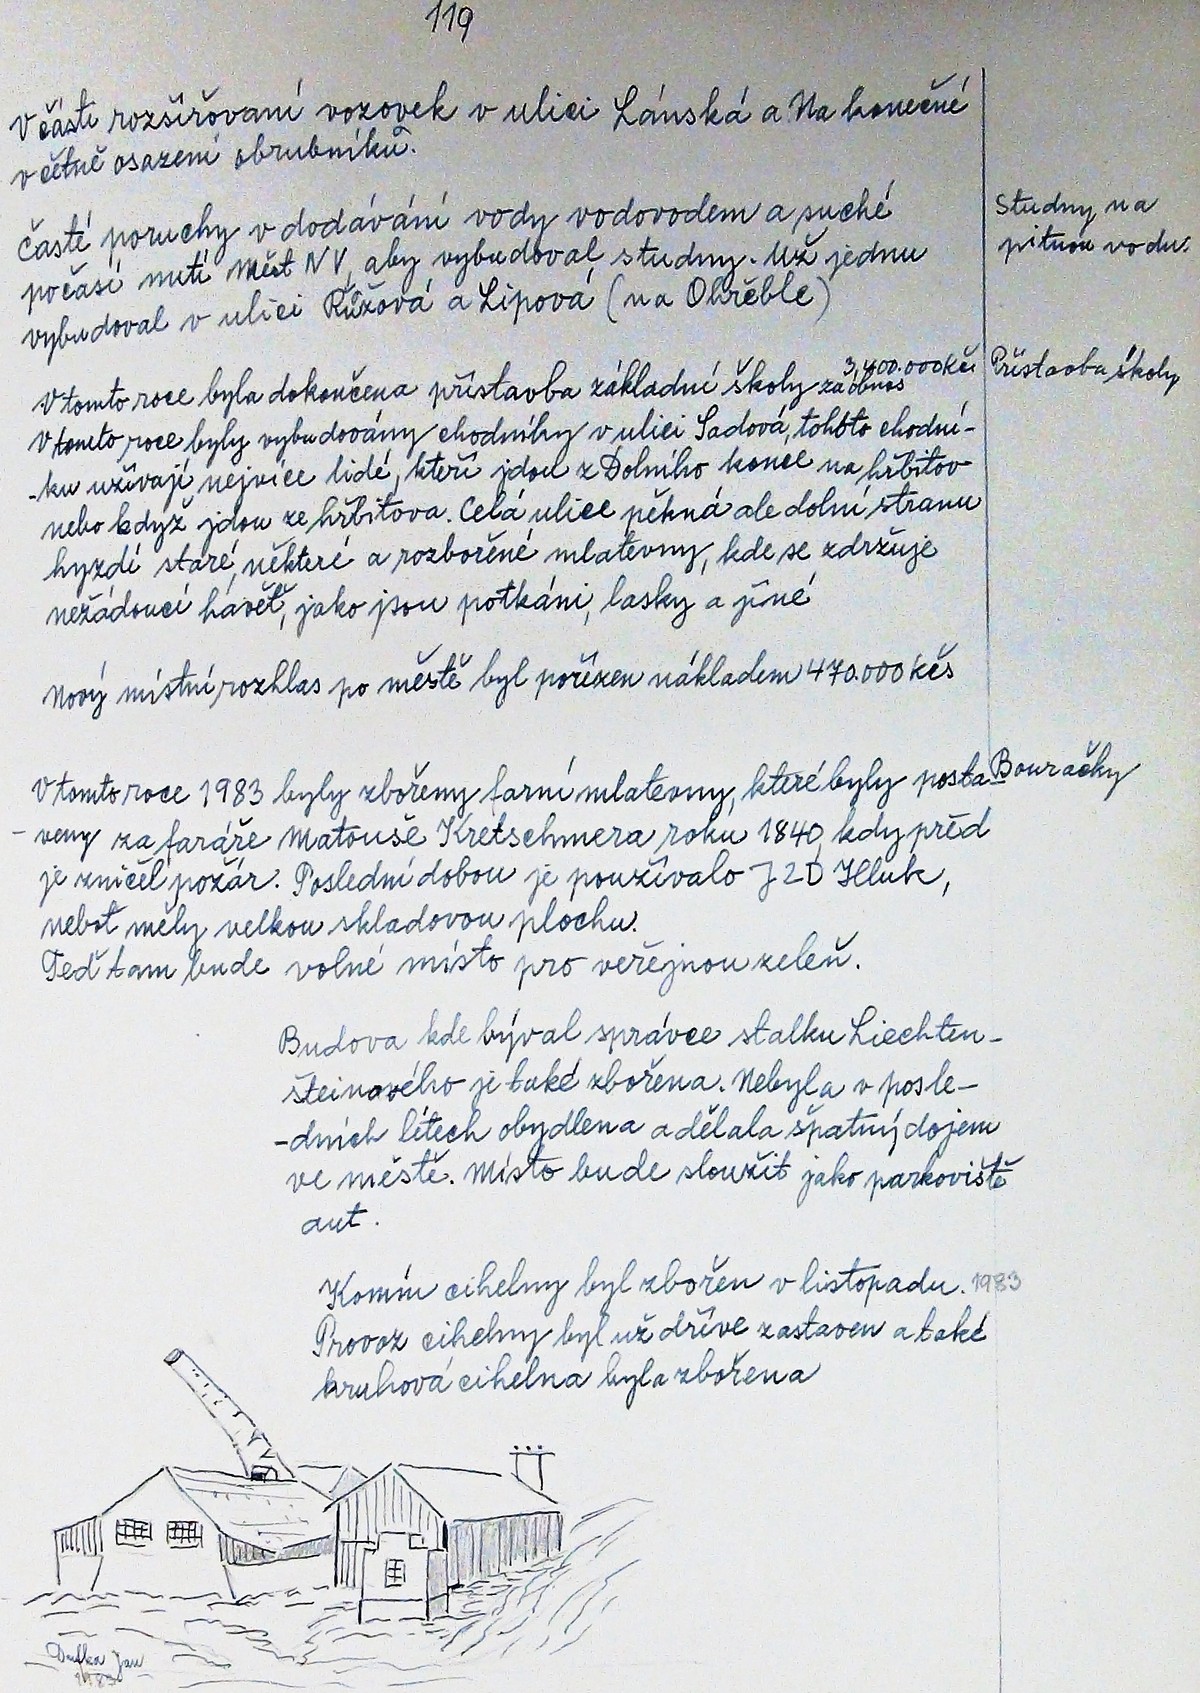 119
V části rozšiřování vozovek v ulici Lánská a Na konečné
včetně osazení obrubníků.
Časté poruchy v dodávání vody vodovodem a suché
Studny na
počasí nutí Měst NV, aby vybudoval studny. Už jednu
pitnou vodu.
vybudoval v ulici Růžová a Lipová (na Ohřeble)
V tomto roce byla dokončena přístavba základní školy za obnos 3,400.000 Kčs
Přístavba školy
V tomto roce byly vybudovány chodníky v ulici Sadová, tohoto chodní-
-ku užívají nejvíce lidé, kteří jdou z Dolního konce na hřbitov
nebo když jdou ze hřbitova. Celá ulice pěkná ale dolní stranu
hyzdí staré, některé a rozbořené mlatevny, kde se zdržuje
nežádoucí hávěť, jako jsou potkáni, lasky a jiné
Nový místní rozhlas po městě byl pořízen nákladem 470.000 Kčs
V tomto roce 1983 byly zbořeny farní mlatevny, které byly posta-
Bouračky
-veny za faráře Matouše Kretschmera roku 1840, kdy před
je zničel požár. Poslední dobou je používalo JZD Hluk,
neboť měly velkou skladovou plochu.
Teď tam bude volné místo pro veřejnou zeleň.
Budova kde býval správce statku Liechten-
šteinového je také zbořena. Nebyla v posle-
-dních létech obydlena a dělala špatný dojem
ve městě. Místo bude sloužit jako parkoviště
aut.
Komín cihelny byl zbořen v listopadu. 1983
Provoz cihelny byl už dříve zastaven a také
kruhová cihelna byla zbořena
Dufka Jan
1983